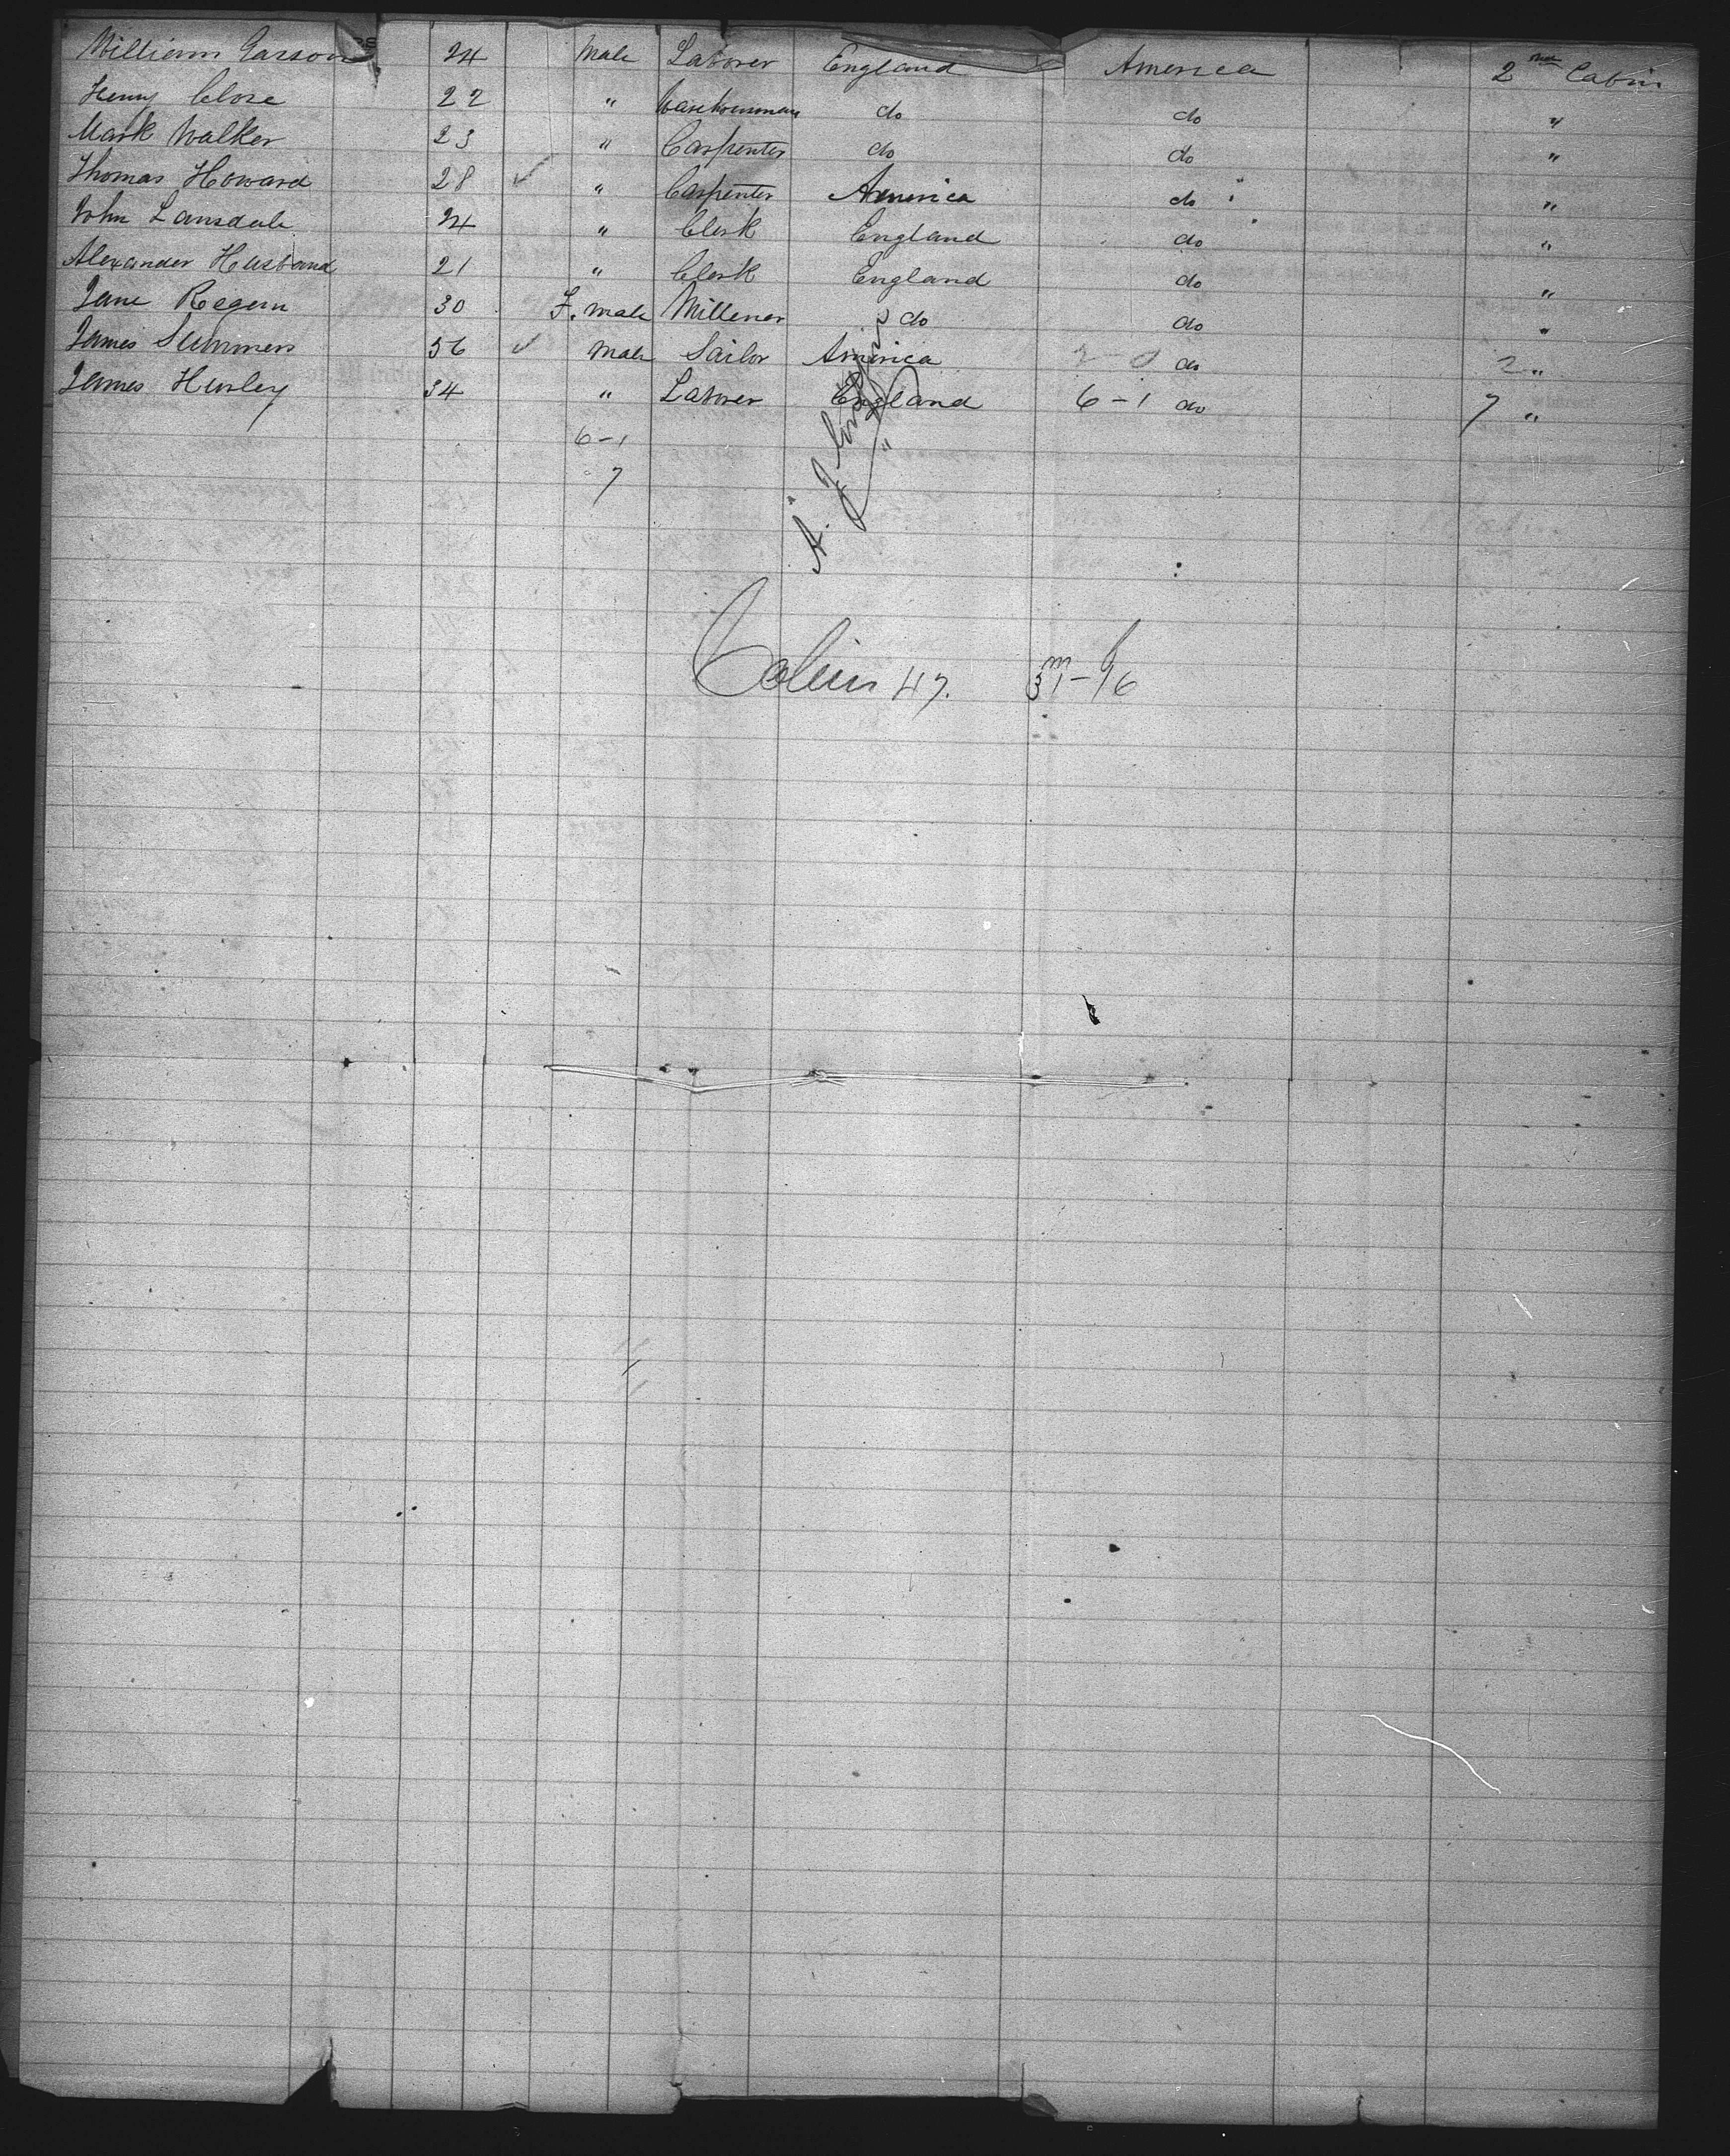 William Garson 24 Male Laborer England America 2nd Cabin
Henry Close 22 " Warehouseman do do "
Mark Walker 23 " Carpenter do do "
Thomas Howard 28 ✓ " Carpenter America do "
John Lansdale 24 " Clerk England do "
Alexander Husband 21 " Clerk England do "
Jane Regern 30 F. male Millener do do "
James Summers 56 ✓ Male Sailor America 2-0 do 2 "
James Hurley 34 " Laborer England 6-1 do 7 "
6-1
7
A. J.
Cabin 47. m f
31-16